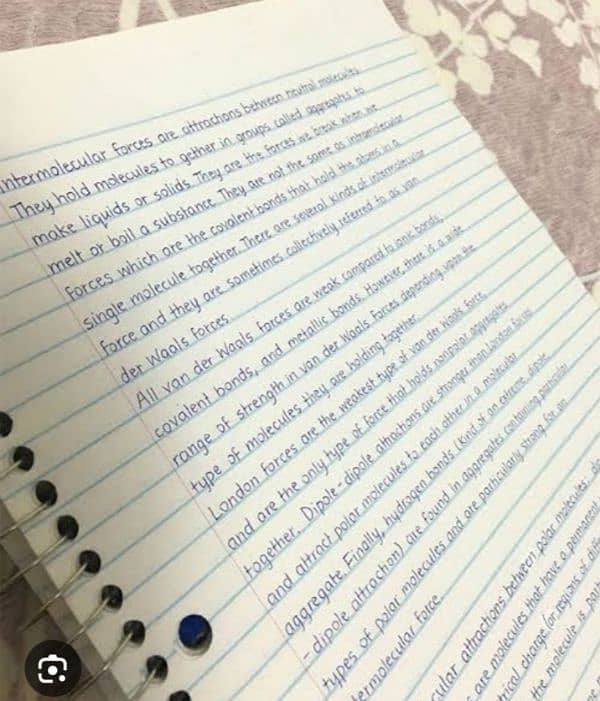 intermolecular forces are attractions between neutral molecules.
They hold molecules to gether in groups called aggregates to
make liquids or solids. They are the forces we break when we
melt or boil a substance. They are not the same as intramolecular
forces which are the covalent bonds that hold the atoms in a
single molecule together. There are several kinds of intermolecular
force and they are sometimes collectively referred to as van
der Waals forces.
All van der Waals forces are weak compared to ionic bonds,
covalent bonds, and metallic bonds. However, there is a wide
range of strength in van der Waals forces depending upon the
type of molecules they are holding together.
London forces are the weakest type of van der Waals force
and are the only type of force that holds nonpolar aggregates
together. Dipole-dipole attractions are stronger than London forces
and attract polar molecules to each other in a molecular
aggregate. Finally, hydrogen bonds (kind of an extreme dipole
-dipole attraction) are found in aggregates containing particular
types of polar molecules and are particularly strong for an
termolecular force.
cular attractions between polar molecules.
are molecules that have a permanent
trical charge (or regions of
the molecule is